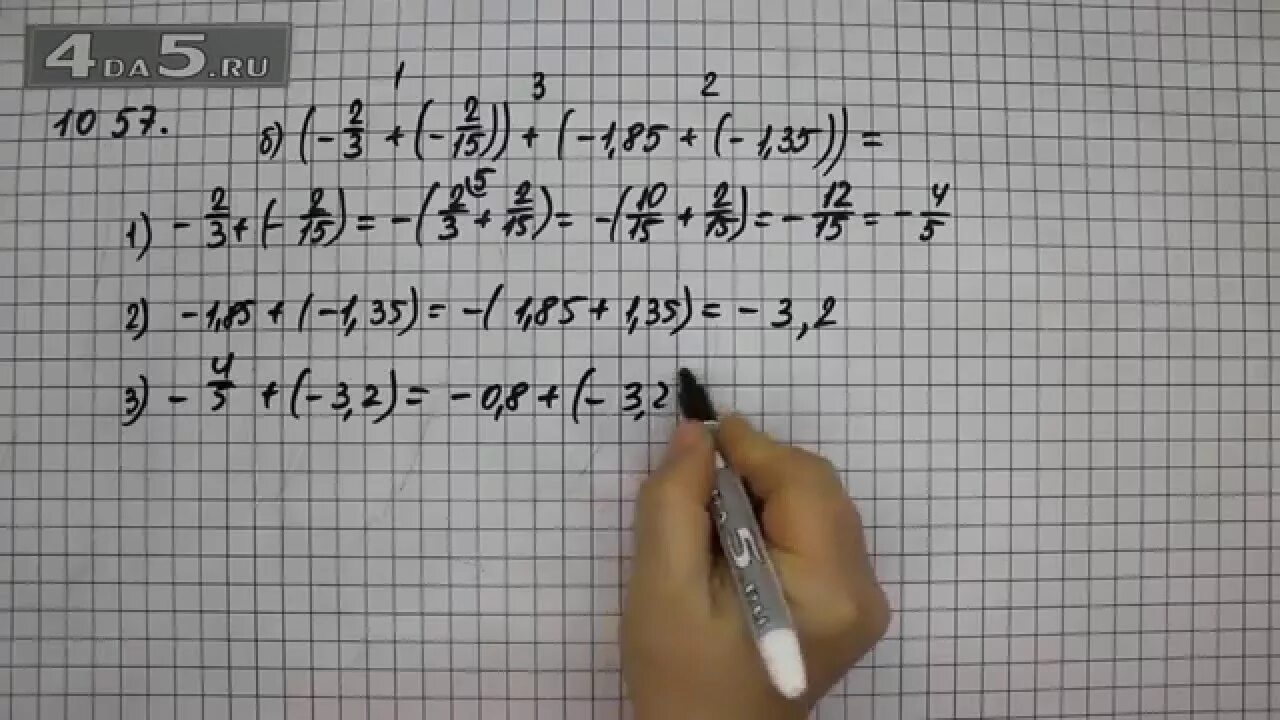 4DA5.RU
1 3 2
1057. б) (-2/3 + (-2/15)) + (-1,85 + (-1,35)) =
1) -2/3 + (-2/15) = -(2\5/3 + 2/15) = -(10/15 + 2/15) = -12/15 = -4/5
2) -1,85 + (-1,35) = -(1,85 + 1,35) = -3,2
3) -4/5 + (-3,2) = -0,8 + (-3,2